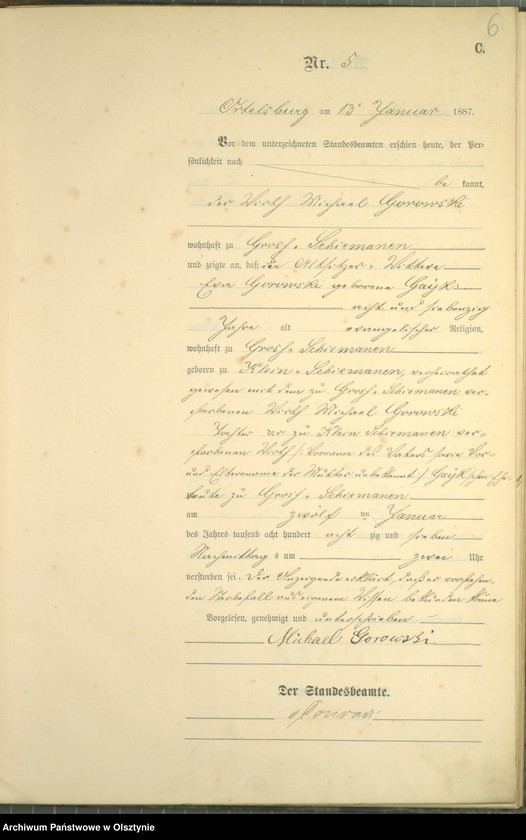 6
C.
Nr. 5
Ortelsburg am 13ᵗ Januar 1887.
Vor dem unterzeichneten Standesbeamten erschien heute, der Per-
sönlichkeit nach
be kannt,
der Wirth Michael Gorowski
wohnhaft zu Groß-Schiemanen
und zeigte an, daß die Altsitzer-Wittwe
Eva Gorowski geborene Gayk
acht und siebenzig
Jahre alt evangelischer Religion,
wohnhaft zu Groß-Schiemanen
geboren zu Klein-Schiemanen, verheirathet
gewesen mit dem zu Groß-Schiemanen ver-
storbenen Wirth Michael Gorowski
Tochter der zu Klein Schiemanen ver-
storbenen Wirth /: Vorname des Vaters sowie Vor-
und Elternname der Mutter unbekannt :/ Gayk'schen Ehe-
leute zu Groß-Schiemanen
am zwölf ten Januar
des Jahres tausend acht hundert acht zig und sieben
Nachmittag s um zwei Uhr
verstorben sei. Der Anzeigende erklärt, daß er vorstehen-
den Sterbefall aus eigenem Wissen bekunden könne
Vorgelesen, genehmigt und unterschrieben
Michael Gorowski
Der Standesbeamte.
Archiwum Państwowe w Olsztynie